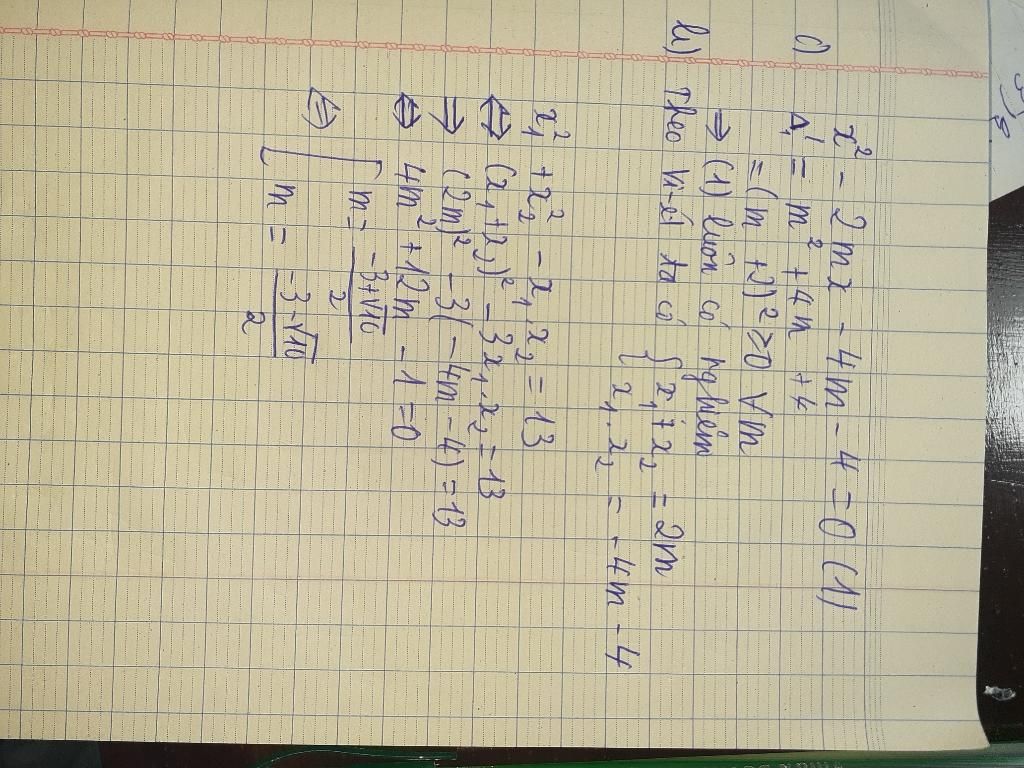 x² - 2mx - 4m - 4 = 0 (1)
c) Δ'₁ = m² + 4m + 4
= (m + 2)² ≥ 0 ∀m
⇒ (1) luôn có nghiệm
b) Theo Vi-ét ta có { x₁ + x₂ = 2m
x₁ . x₂ = -4m - 4
x₁² + x₂² - x₁ x₂ = 13
⇔ (x₁ + x₂)² - 3x₁.x₂ = 13
⇒ (2m)² - 3(-4m - 4) = 13
⇔ 4m² + 12m - 1 = 0
⇔ [ m = (-3+√10)/2
m = (-3-√10)/2